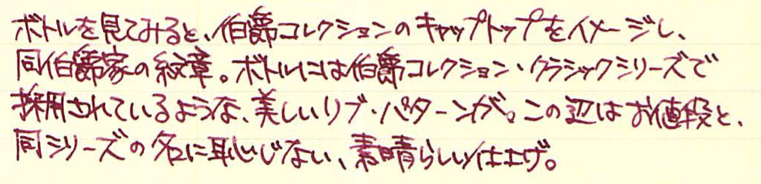 ボトルを見てみると、伯爵コレクションのキャップトップをイメージし、
同伯爵家の紋章。ボトルには伯爵コレクション・クラシックシリーズで
採用されているような、美しいリブ・パターンが。この辺はお値段と、
同シリーズの名に恥じない、素晴らしい仕上げ。